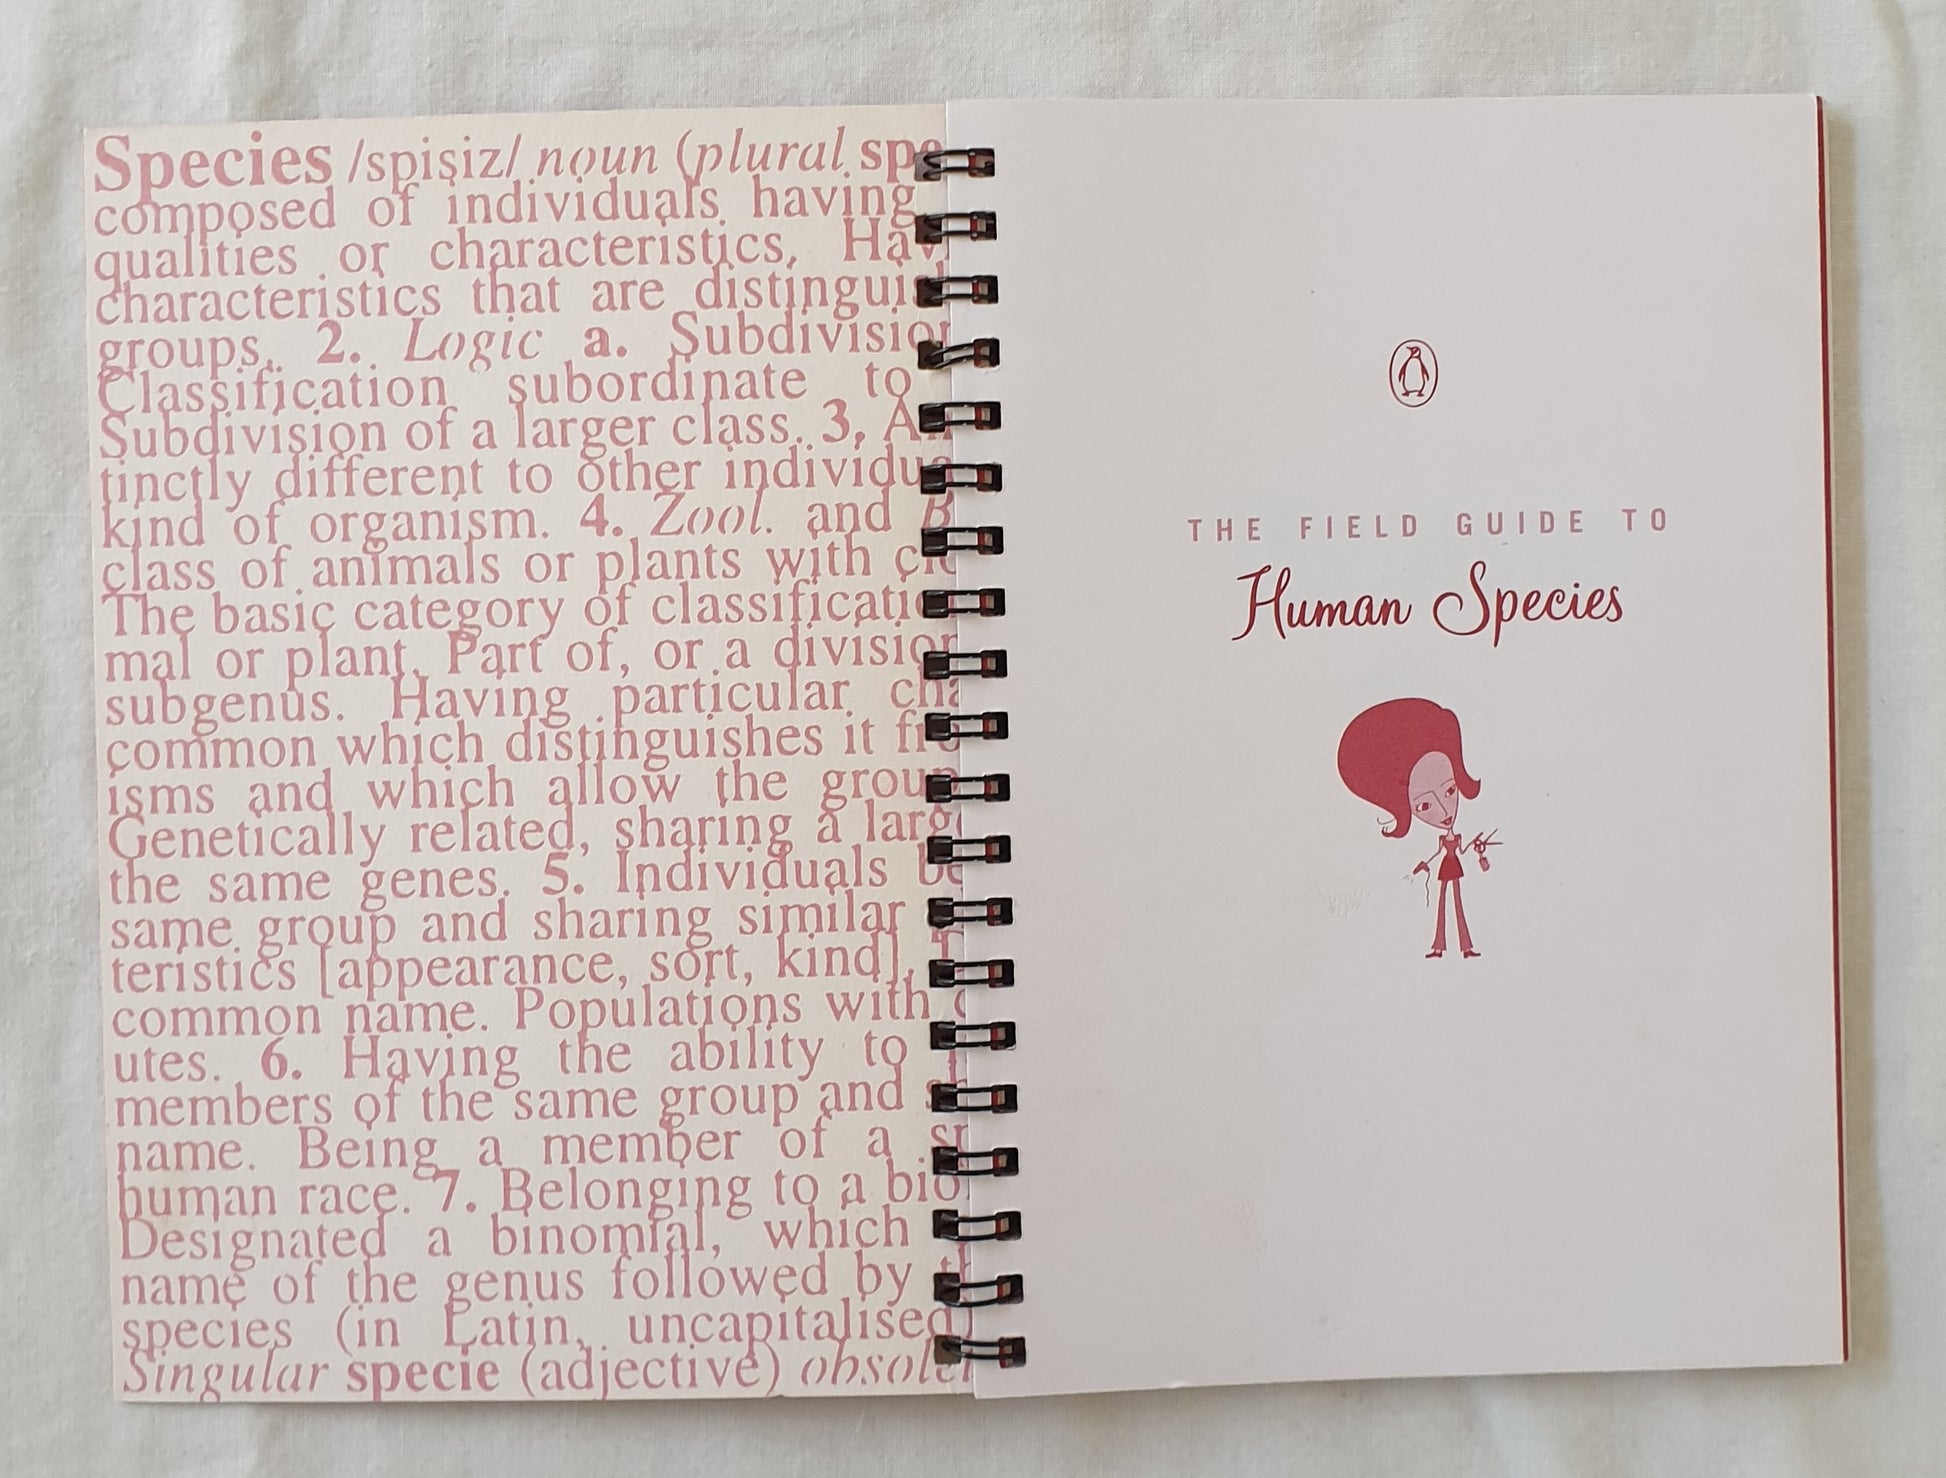 Species /spisiz/ noun (plural
composed of individuals having
qualities or characteristics. Hav
characteristics that are distingui
groups. 2. Logic a. Subdivision
Classification subordinate to
Subdivision of a larger class. 3. An
tinctly different to other individu
kind of organism. 4. Zool. and B
class of animals or plants with
The basic category of classificati
mal or plant. Part of, or a division
subgenus. Having particular cha
common which distinguishes it fro
isms and which allow the group
Genetically related, sharing a larg
the same genes. 5. Individuals be
same group and sharing similar
teristics [appearance, sort, kind].
common name. Populations with
utes. 6. Having the ability to
members of the same group and
name. Being a member of a
human race. 7. Belonging to a bio
Designated a binomial, which
name of the genus followed by
species (in Latin, uncapitalised)
Singular specie (adjective) obsolet
THE FIELD GUIDE TO
Human Species